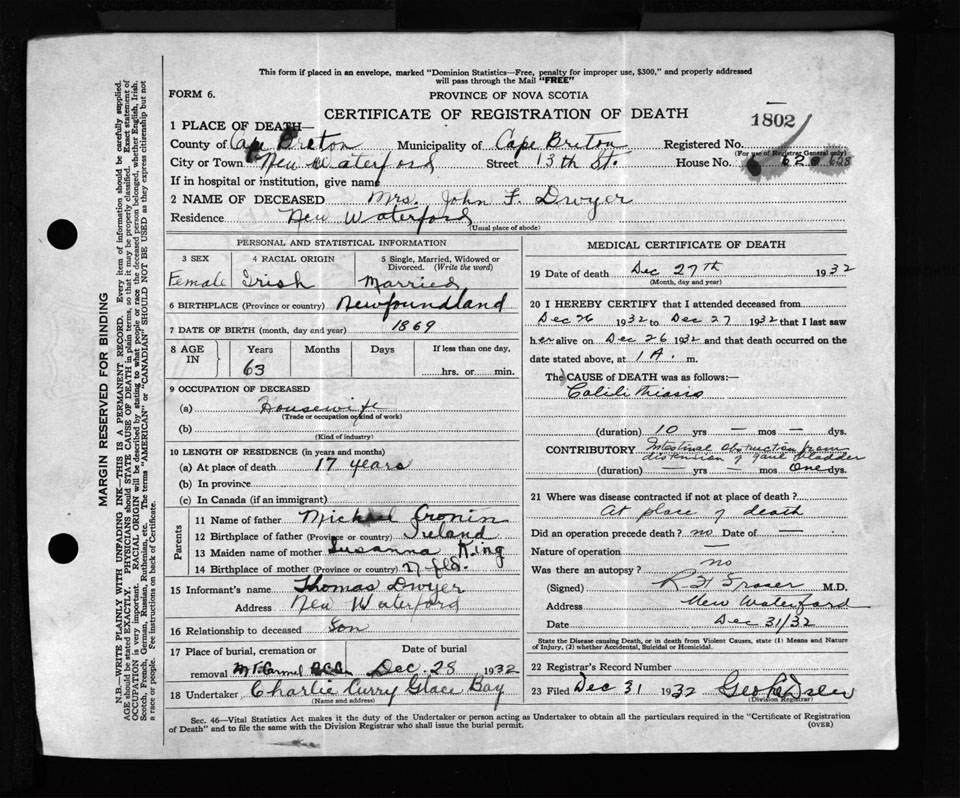 This form if placed in an envelope, marked "Dominion Statistics—Free, penalty for improper use, $300," and properly addressed
will pass through the Mail "FREE"
FORM 6.
PROVINCE OF NOVA SCOTIA
CERTIFICATE OF REGISTRATION OF DEATH
1802
1 PLACE OF DEATH—
County of Cape Breton Municipality of Cape Breton Registered No.
(For use of Registrar General only)
City or Town New Waterford Street 13th St. House No. 628
If in hospital or institution, give name
2 NAME OF DECEASED Mrs. John F. Dwyer
Residence New Waterford
(Usual place of abode)
PERSONAL AND STATISTICAL INFORMATION
3 SEX 4 RACIAL ORIGIN 5 Single, Married, Widowed or
Divorced. (Write the word)
Female Irish Married
6 BIRTHPLACE (Province or country) Newfoundland
7 DATE OF BIRTH (month, day and year) 1869
8 AGE IN Years Months Days If less than one day,
63 hrs. or min.
9 OCCUPATION OF DECEASED
(a) Housewife
(Trade or occupation or kind of work)
(b)
(Kind of industry)
10 LENGTH OF RESIDENCE (in years and months)
(a) At place of death 17 years
(b) In province
(c) In Canada (if an immigrant)
Parents
11 Name of father Michael Cronin
12 Birthplace of father (Province or country) Ireland
13 Maiden name of mother Susanna King
14 Birthplace of mother " Nfld.
15 Informant's name Thomas Dwyer
Address New Waterford
16 Relationship to deceased Son
17 Place of burial, cremation or Date of burial
removal Mt Carmel Dec. 28 1932
18 Undertaker Charlie Curry Glace Bay
(Name and address)
MEDICAL CERTIFICATE OF DEATH
19 Date of death Dec 27th 1932
(Month, day and year)
20 I HEREBY CERTIFY that I attended deceased from
Dec 26 1932 to Dec 27 1932 that I last saw
her alive on Dec 26 1932 and that death occurred on the
date stated above, at 1 A. m.
The CAUSE OF DEATH was as follows:
Calilithiasis
(duration) 10 yrs — mos — dys.
CONTRIBUTORY Intestinal obstruction from
distension of gaul bladder
(duration) — yrs — mos one dys.
21 Where was disease contracted if not at place of death?
At place of death
Did an operation precede death? no Date of —
Nature of operation —
Was there an autopsy? no
(Signed) R F Fraser M.D.
Address New Waterford
Date Dec 31/32
State the Disease causing Death, or in death from Violent Causes, state (1) Means and Nature
of Injury, (2) whether Accidental, Suicidal or Homicidal.
22 Registrar's Record Number
23 Filed Dec 31 1932 Geo
(Division Registrar)
Sec. 46—Vital Statistics Act makes it the duty of the Undertaker or person acting as Undertaker to obtain all the particulars required in the "Certificate of Registration
of Death" and to file the same with the Division Registrar who shall issue the burial permit. (OVER)
MARGIN RESERVED FOR BINDING
N.B.—WRITE PLAINLY WITH UNFADING INK—THIS IS A PERMANENT RECORD. Every item of information should be carefully supplied.
AGE should be stated EXACTLY. PHYSICIANS should STATE CAUSE OF DEATH in plain terms, so that it may be properly classified. Exact statement of
OCCUPATION is very important. RACIAL ORIGIN will be described by stating to what people or race the deceased person belonged, whether English, Irish,
Scotch, French, German, Russian, Ruthenian, etc. The terms "AMERICAN" or "CANADIAN" SHOULD NOT BE USED as they express citizenship but not
a race or people. See instructions on back of Certificate.